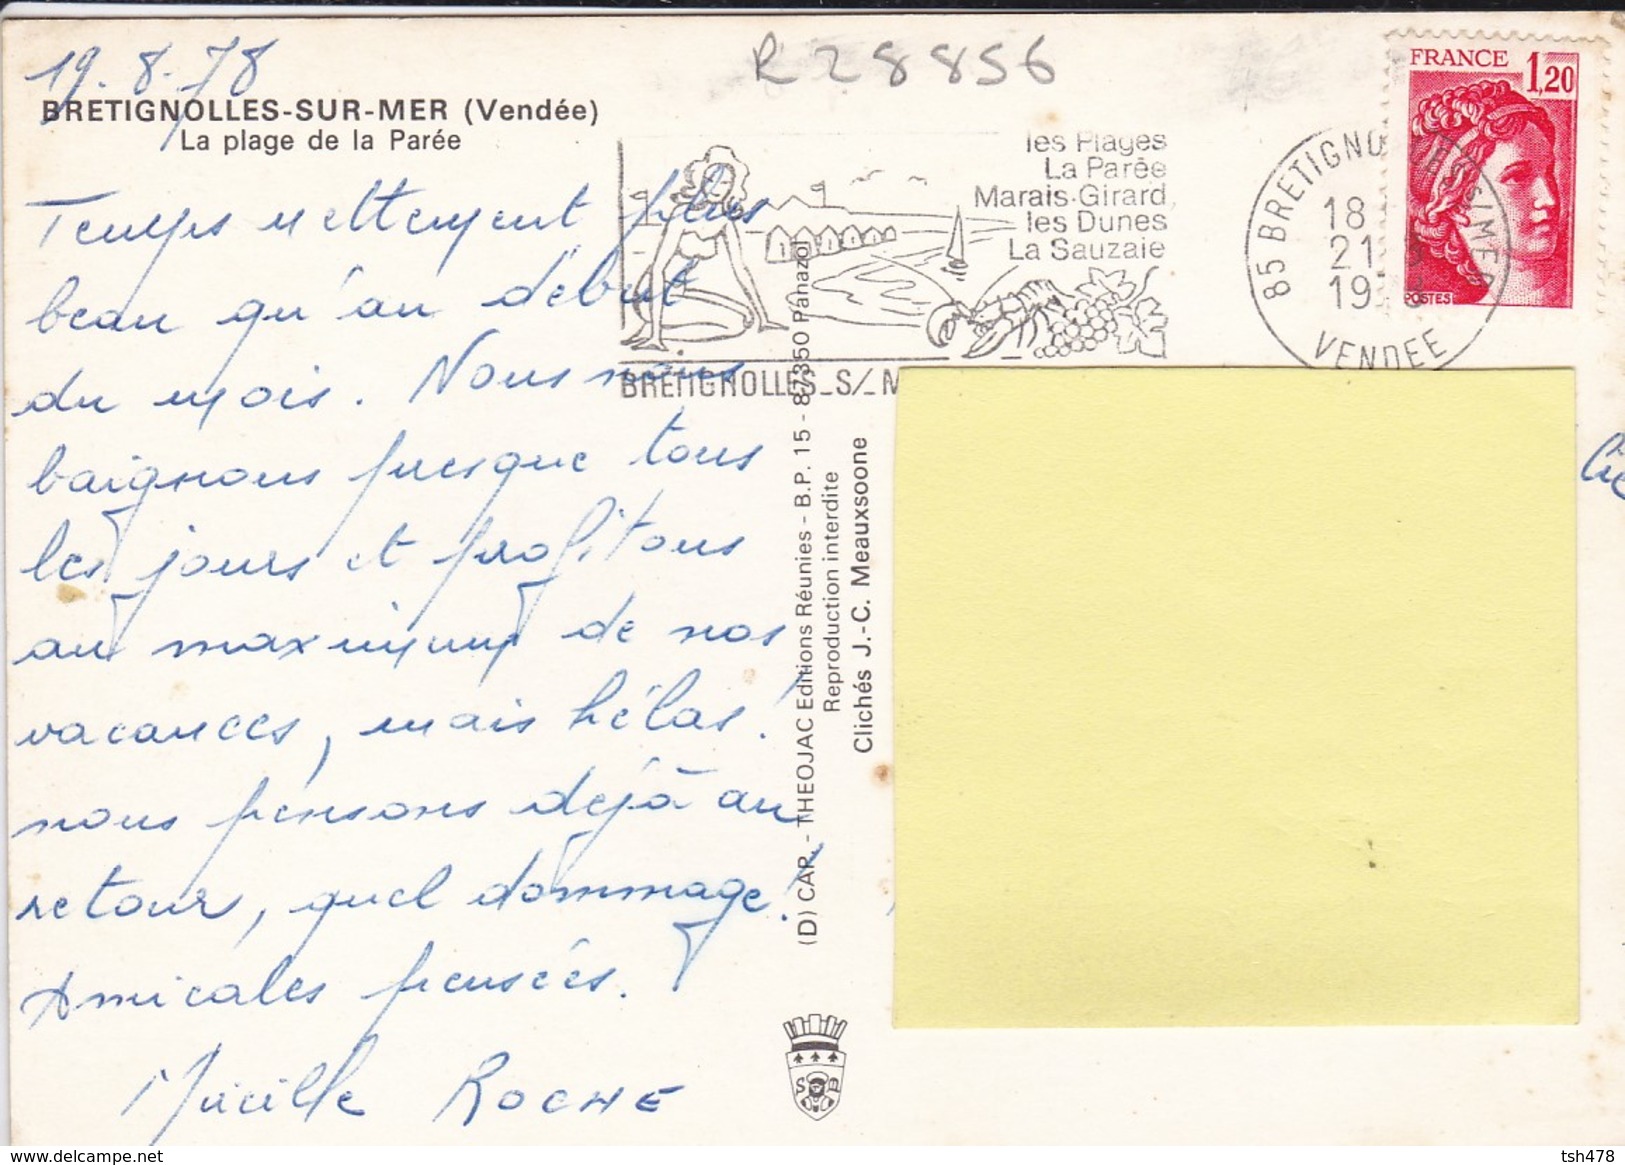 19.8.78
R 28856
BRETIGNOLLES-SUR-MER (Vendée)
La plage de la Parée
Temps nettement plus
beau qu'au début
du mois. Nous nous
baignons presque tous
les jours et profitons
au maximum de nos
vacances, mais hélas!
nous pensons déjà au
retour, quel dommage!
Amicales pensées.
Mireille ROCHE
les Plages
La Parée
Marais-Girard
les Dunes
La Sauzaie
BRETIGNOLLES_S/_M
85 BRETIGNOLLES S/MER
18
21
19
VENDEE
FRANCE 1,20
POSTES
(D) CAP - THEOJAC Editions Réunies - B.P. 15 - 87350 Panazol
Reproduction interdite
Clichés J.-C. Meauxsoone
S
www.delcampe.net
tsh478